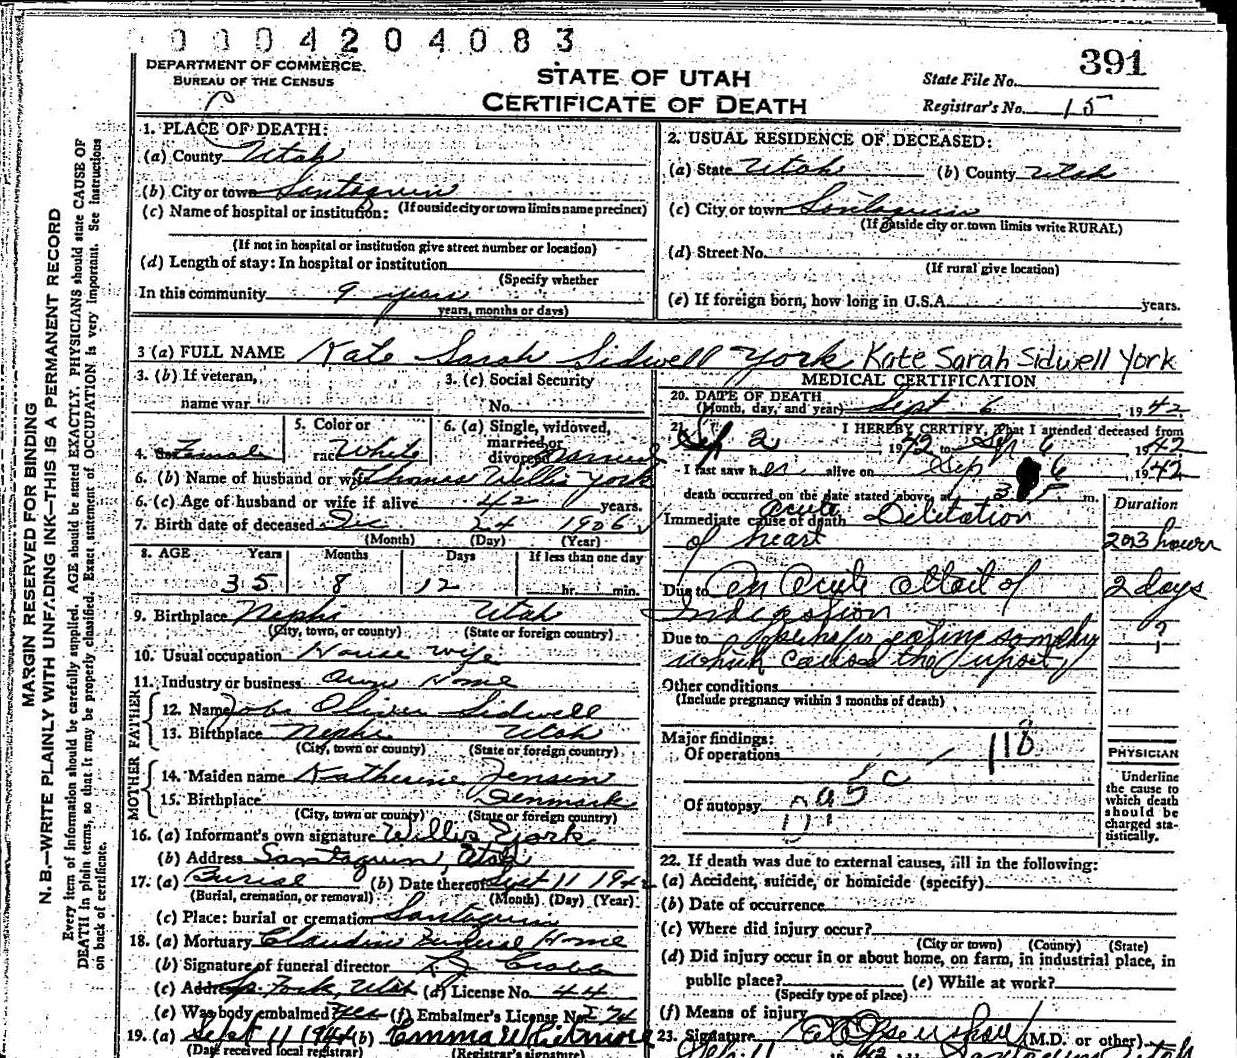 0004204083
391
DEPARTMENT OF COMMERCE
BUREAU OF THE CENSUS
STATE OF UTAH
CERTIFICATE OF DEATH
State File No.
Registrar's No. 15
MARGIN RESERVED FOR BINDING
N. B.—WRITE PLAINLY WITH UNFADING INK—THIS IS A PERMANENT RECORD
Every item of information should be carefully supplied. AGE should be stated EXACTLY. PHYSICIANS should state CAUSE OF
DEATH in plain terms, so that it may be properly classified. Exact statement of OCCUPATION is very important. See instructions
on back of certificate.
1. PLACE OF DEATH:
(a) County Utah
(b) City or town Santaquin
(If outside city or town limits name precinct)
(c) Name of hospital or institution:
(If not in hospital or institution give street number or location)
(d) Length of stay: In hospital or institution
(Specify whether
In this community 9 years
years, months or days)
2. USUAL RESIDENCE OF DECEASED:
(a) State Utah (b) County Utah
(c) City or town Santaquin
(If outside city or town limits write RURAL)
(d) Street No.
(If rural give location)
(e) If foreign born, how long in U.S.A. years.
3 (a) FULL NAME Kate Sarah Sidwell York Kate Sarah Sidwell York
3. (b) If veteran,
name war
3. (c) Social Security
No.
4. Sex Female
5. Color or
race White
6. (a) Single, widowed,
married or
divorced Married
6. (b) Name of husband or wife Thomas Willis York
6. (c) Age of husband or wife if alive 42 years.
7. Birth date of deceased Dec 24 1906
(Month) (Day) (Year)
8. AGE Years Months Days If less than one day
35 8 12 hr. min.
9. Birthplace Nephi Utah
(City, town, or county) (State or foreign country)
10. Usual occupation House wife
11. Industry or business Own Home
FATHER
12. Name John Oliver Sidwell
13. Birthplace Nephi Utah
(City, town or county) (State or foreign country)
MOTHER
14. Maiden name Katherine Jensen
15. Birthplace Denmark
(City, town or county) (State or foreign country)
16. (a) Informant's own signature Willis York
(b) Address Santaquin, Utah
17. (a) Burial (b) Date thereof Sept 11 1942
(Burial, cremation, or removal) (Month) (Day) (Year)
(c) Place: burial or cremation Santaquin
18. (a) Mortuary Claudin Funeral Home
(b) Signature of funeral director
(c) Address Sp. Fork, Utah (d) License No. 44
(e) Was body embalmed? Yes (f) Embalmer's License No. 274
19. (a) Sept 11 1942 (b) Emma Whitmore
(Date received local registrar) (Registrar's signature)
MEDICAL CERTIFICATION
20. DATE OF DEATH
(Month, day, and year) Sept 6 1942
21. I HEREBY CERTIFY, That I attended deceased from
Sep 2 1942 to Sep 6, 1942
I last saw her alive on Sep 6, 1942
death occurred on the date stated above, at m.
Duration
Immediate cause of death Acute Diletation
of heart 2 or 3 hours
Due to An Acute attack of 2 days
Indigestion
Due to perhaps eating something ?
which caused the upset
Other conditions
(Include pregnancy within 3 months of death)
Major findings:
Of operations 118
Of autopsy
PHYSICIAN
Underline
the cause to
which death
should be
charged sta-
tistically.
22. If death was due to external causes, fill in the following:
(a) Accident, suicide, or homicide (specify)
(b) Date of occurrence
(c) Where did injury occur?
(City or town) (County) (State)
(d) Did injury occur in or about home, on farm, in industrial place, in
public place? (e) While at work?
(Specify type of place)
(f) Means of injury
23. Signature (M.D. or other)